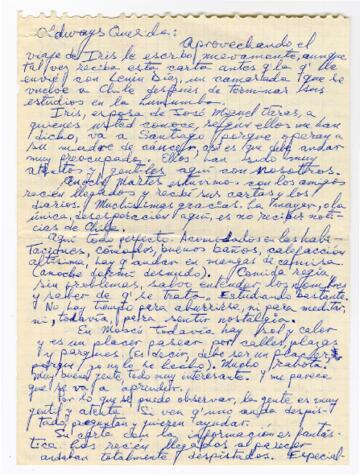 Always Querida:
Aprovechando el
viaje de Iris le escribo nuevamente, aunque
tal vez reciba esta carta antes q' la q' le
envié con Lenin Díaz, un camarada q' se
vuelve a Chile después de terminar sus
estudios en la Lumumba.
Iris, esposa de José Miguel Varas, a
quienes usted conoce, ellos me han
dicho va a Santiago porque operan a
su madre de cáncer, así es que debe andar
muy preocupada. Ellos han sido muy
atentos y gentiles aquí con nosotros.
Anoche Martes estuvimos con los amigos
recién llegados y recibí sus cartas y los
diarios. Muchísimas gracias. La mayor, o la
única, desesperación aquí, es no recibir noti-
cias de Chile.
Aquí todo perfecto. Acomodados en las habi-
taciones, cómodas, buenos baños, calefacción
altísima, hay q' andar en mangas de camisa.
(anoche dormí desnudo). Comida regia,
sin problemas, salvo entender los nombres
y saber de q' se trata. Estudiando bastante.
No hay tiempo para aburrirse, ni para meditar,
ni, todavía, para sentir nostalgia.
En Moscú todavía hay sol y calor
y es un placer pasear por calles, plazas
y parques. (Es decir, debe ser un placer
porque yo no lo he hecho). Mucha "rabota".
Muy buena gente, todo muy interesante. Y me parece
que se va a aprender.
Por lo que se puede observar, la gente es muy
gentil y atenta. Si ven q' uno anda despis-
tado, preguntan y quieren ayudar.
Su carta con la información es fantás-
tica. Los recién llegados al parecer
andaban totalmente despistados. Especial-